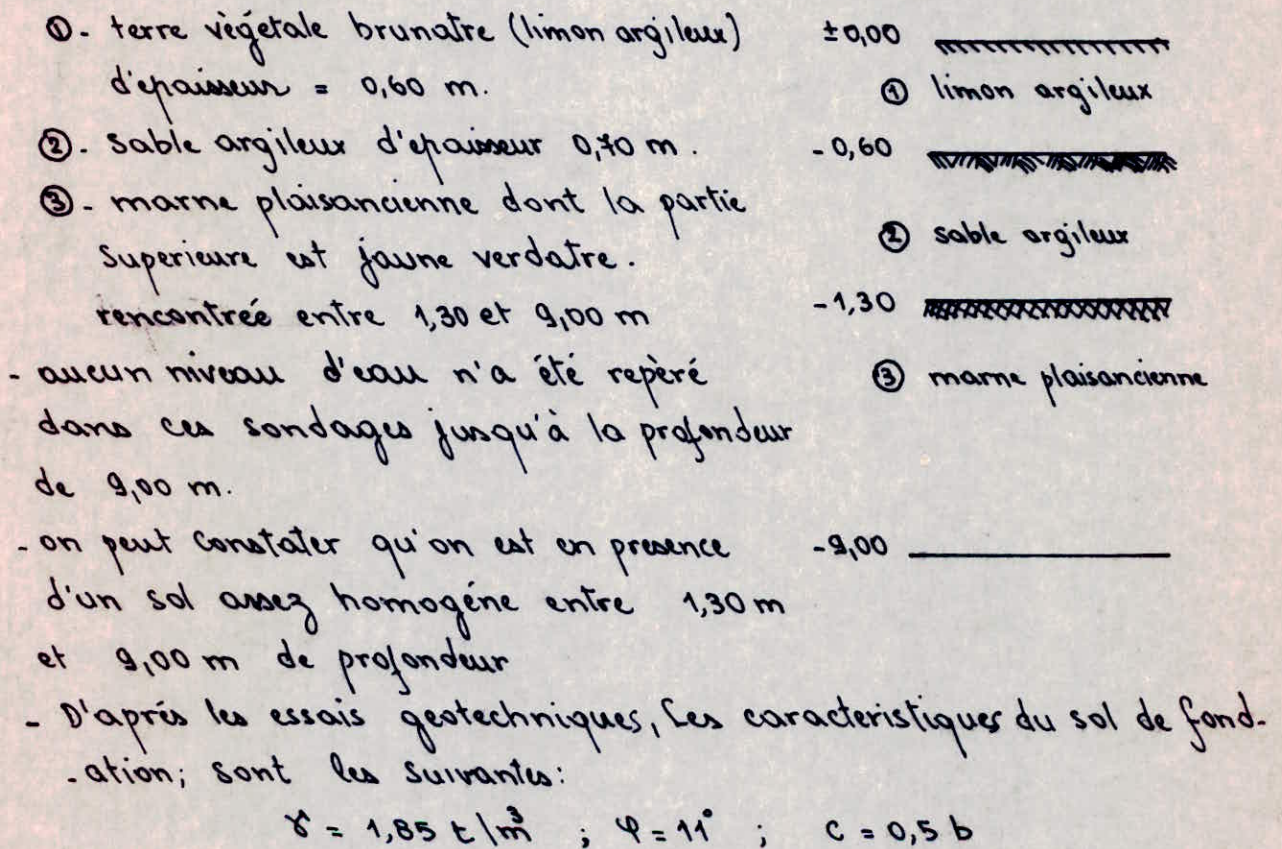 ①. terre vègétale brunatre (limon argileux)
d'epaisseur = 0,60 m.
②. sable argileux d'epaisseur 0,70 m.
③. marne plaisancienne dont la partie
superieure est jaune verdatre.
rencontrée entre 1,30 et 9,00 m
- aucun niveau d'eau n'a été repèré
dans ces sondages jusqu'à la profondeur
de 9,00 m.
- on peut constater qu'on est en presence
d'un sol assez homogéne entre 1,30 m
et 9,00 m de profondeur
- D'aprés les essais geotechniques, les caracteristiques du sol de fond-
-ation; sont les suivantes:
γ = 1,85 t/m³ ; φ = 11° ; c = 0,5 b
±0,00
① limon argileux
-0,60
② sable argileux
-1,30
③ marne plaisancienne
-9,00